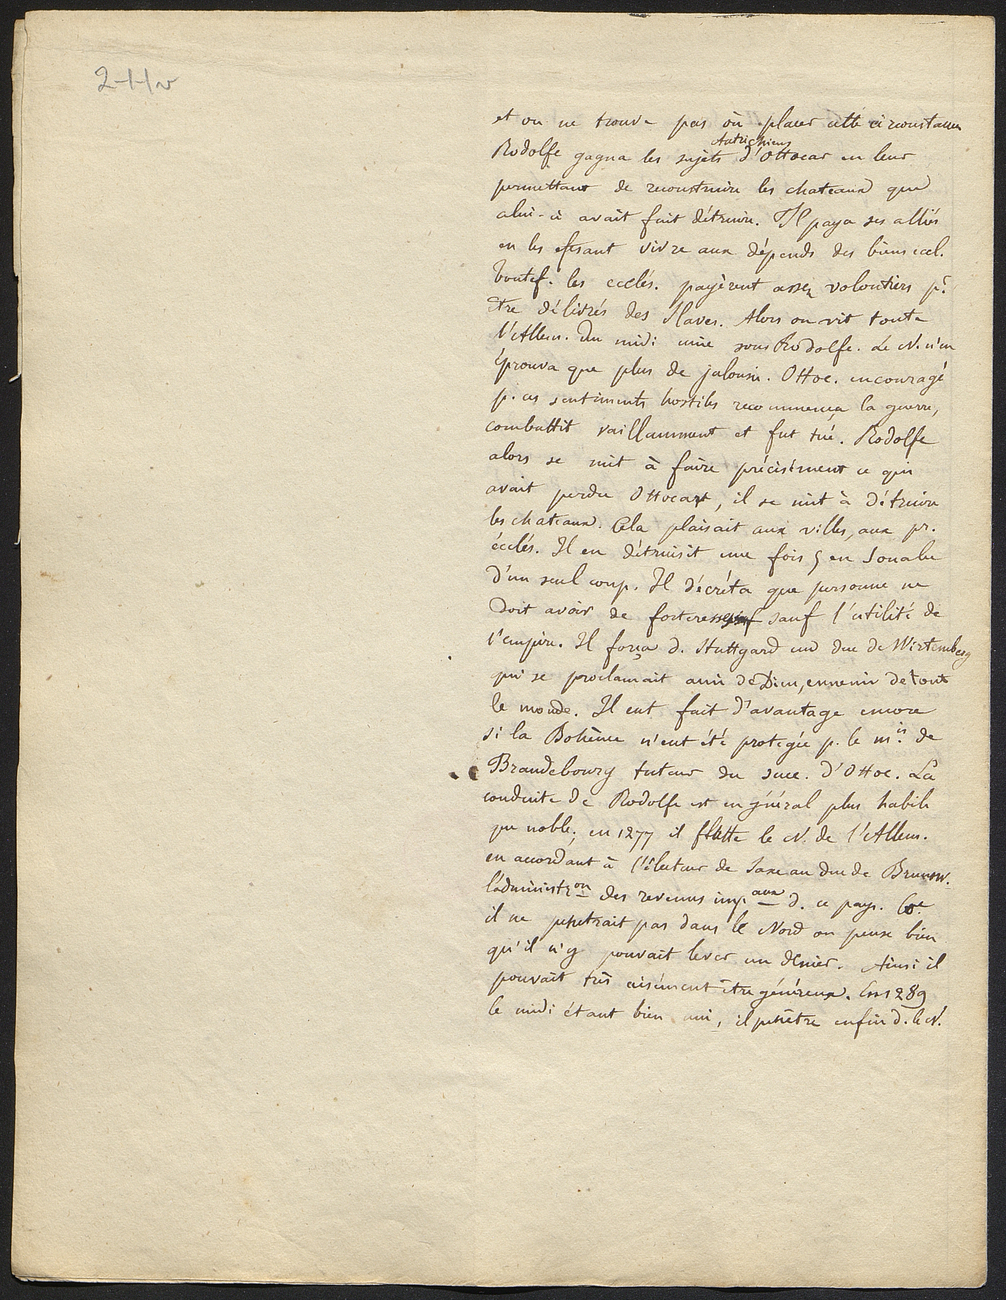 2-H v
et on ne trouve pas où placer cette circonstance
Autrichiens
Rodolfe gagna les sujets d'Ottocar en leur
permettant de reconstruire les chateaux que
celui-ci avait fait détruire. Il paya ses alliés
en les fesant vivre aux dépends des biens eccl.
toutef. les ecclés. payèrent assez volontiers pr
être délivrés des Slaves. Alors on vit toute
l'Allem. du midi unie sous Rodolfe. Le N. n'en
éprouva que plus de jalousie. Ottoc. encouragé
p. ces sentiments hostiles recommença la guerre,
combattit vaillamment et fut tué. Rodolfe
alors se mit à faire précisément ce qui
avait perdu Ottocart, il se mit à détruire
les chateaux. Cela plaisait aux villes, aux pr.
écclés. Il en détruisit une fois 5 en Souabe
d'un seul coup. Il décréta que personne ne
doit avoir de forteresse sauf l'utilité de
l'empire. Il força d. Stuttgard un duc de Wirtemberg
qui se proclamait ami de Dieu, ennemi de tout
le monde. Il eut fait d'avantage encore
si la Bohême n'eut été protegée p. le mis de
Brandebourg tuteur du succ. d'Ottoc. La
conduite de Rodolfe est en général plus habile
que noble; en 1277 il flatte le N. de l'Allem.
en accordant à l'électeur de Saxe au duc de Brunsw.
l'administron des revenus impaux d. ce pays. Coe
il ne pénétrait pas dans le Nord on pense bien
qu'il n'y pouvait lever un denier. Ainsi il
pouvait très aisément être généreux. En 1289
le midi étant bien uni, il pénètre enfin d. le N.